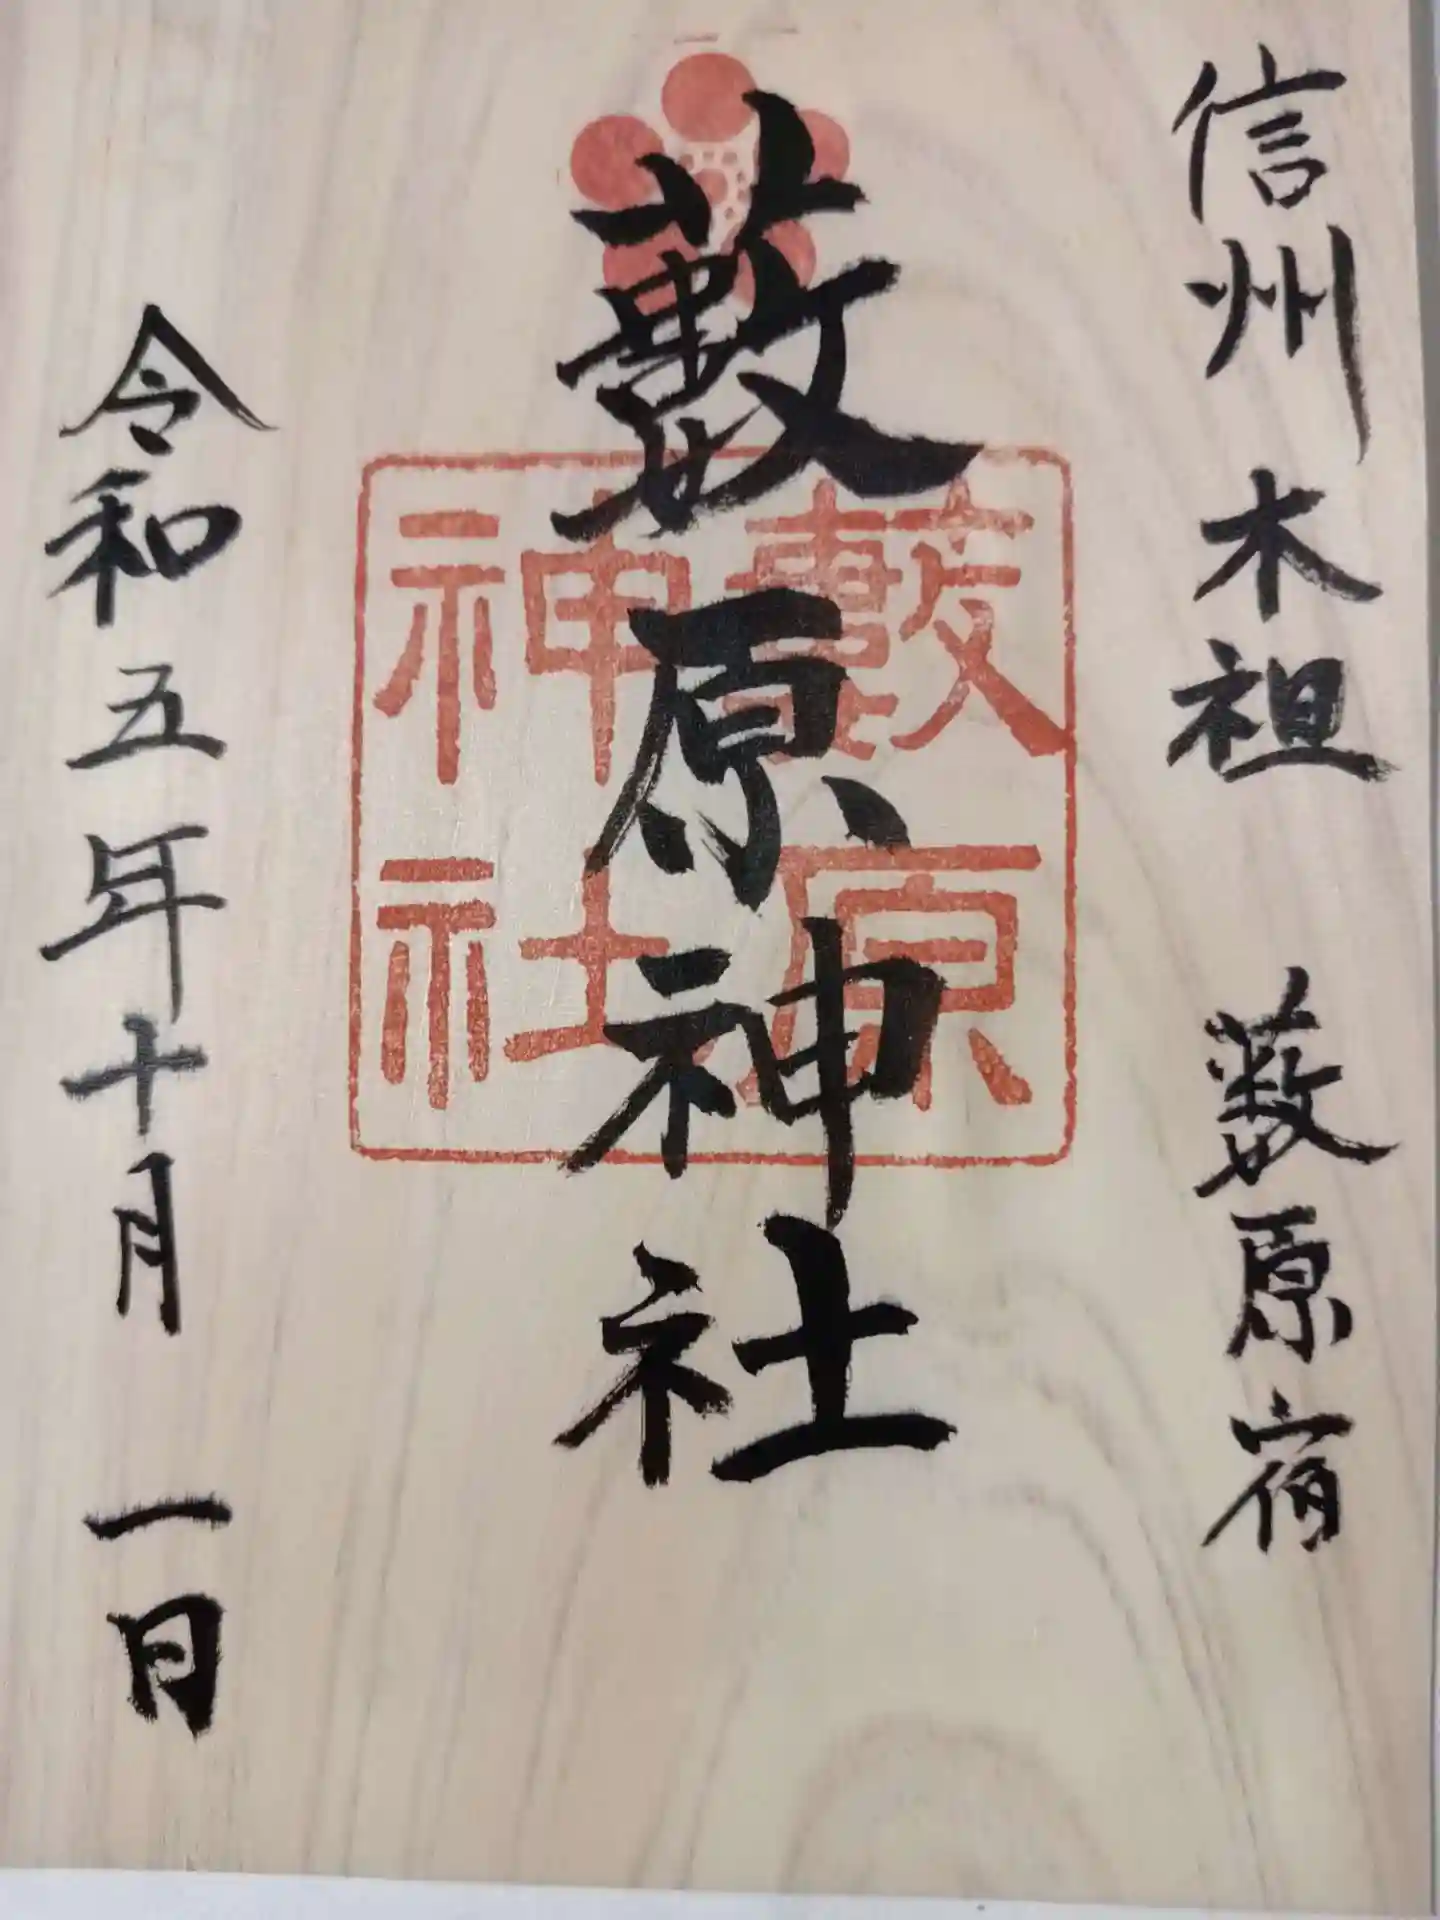 信州 木祖 藪原宿
藪原神社
藪原
神社
令和五年十月 一日